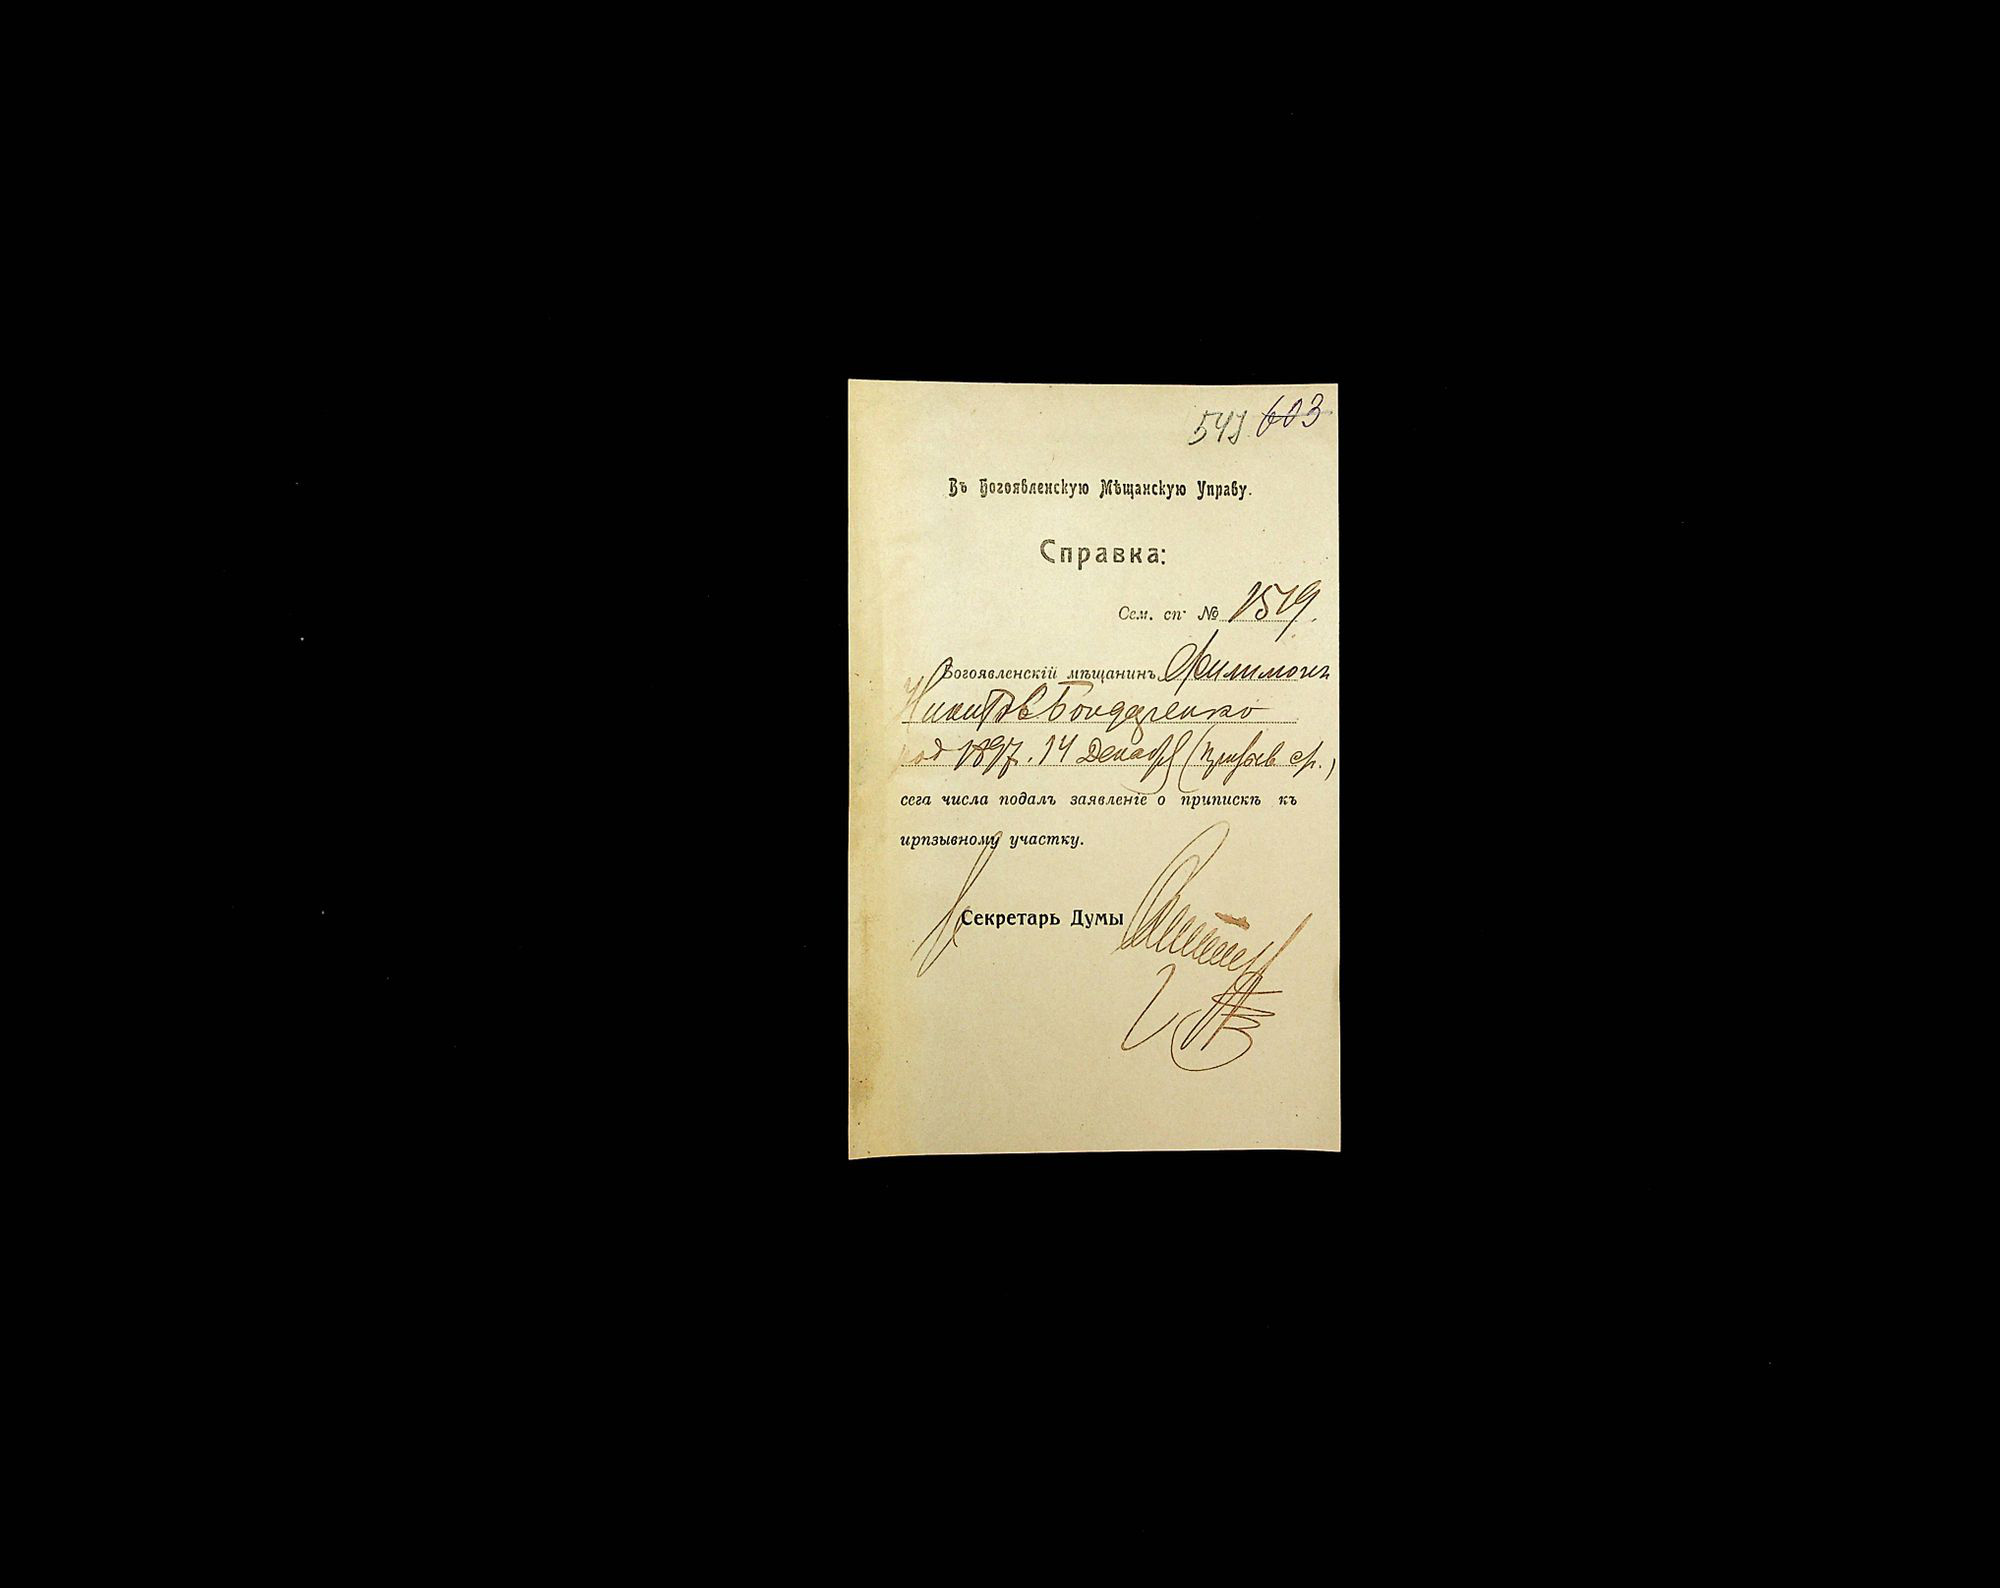 541 603
Въ Богоявленскую Мѣщанскую Управу.
Справка:
Сем. сп. № 1519.
Богоявленскій мѣщанинъ Филимонъ
Никитовъ Бондаренко
род 1897. 14 Декабря (призыв ср.)
сега числа подалъ заявленіе о припискѣ къ
ирпзывному участку.
Секретарь Думы